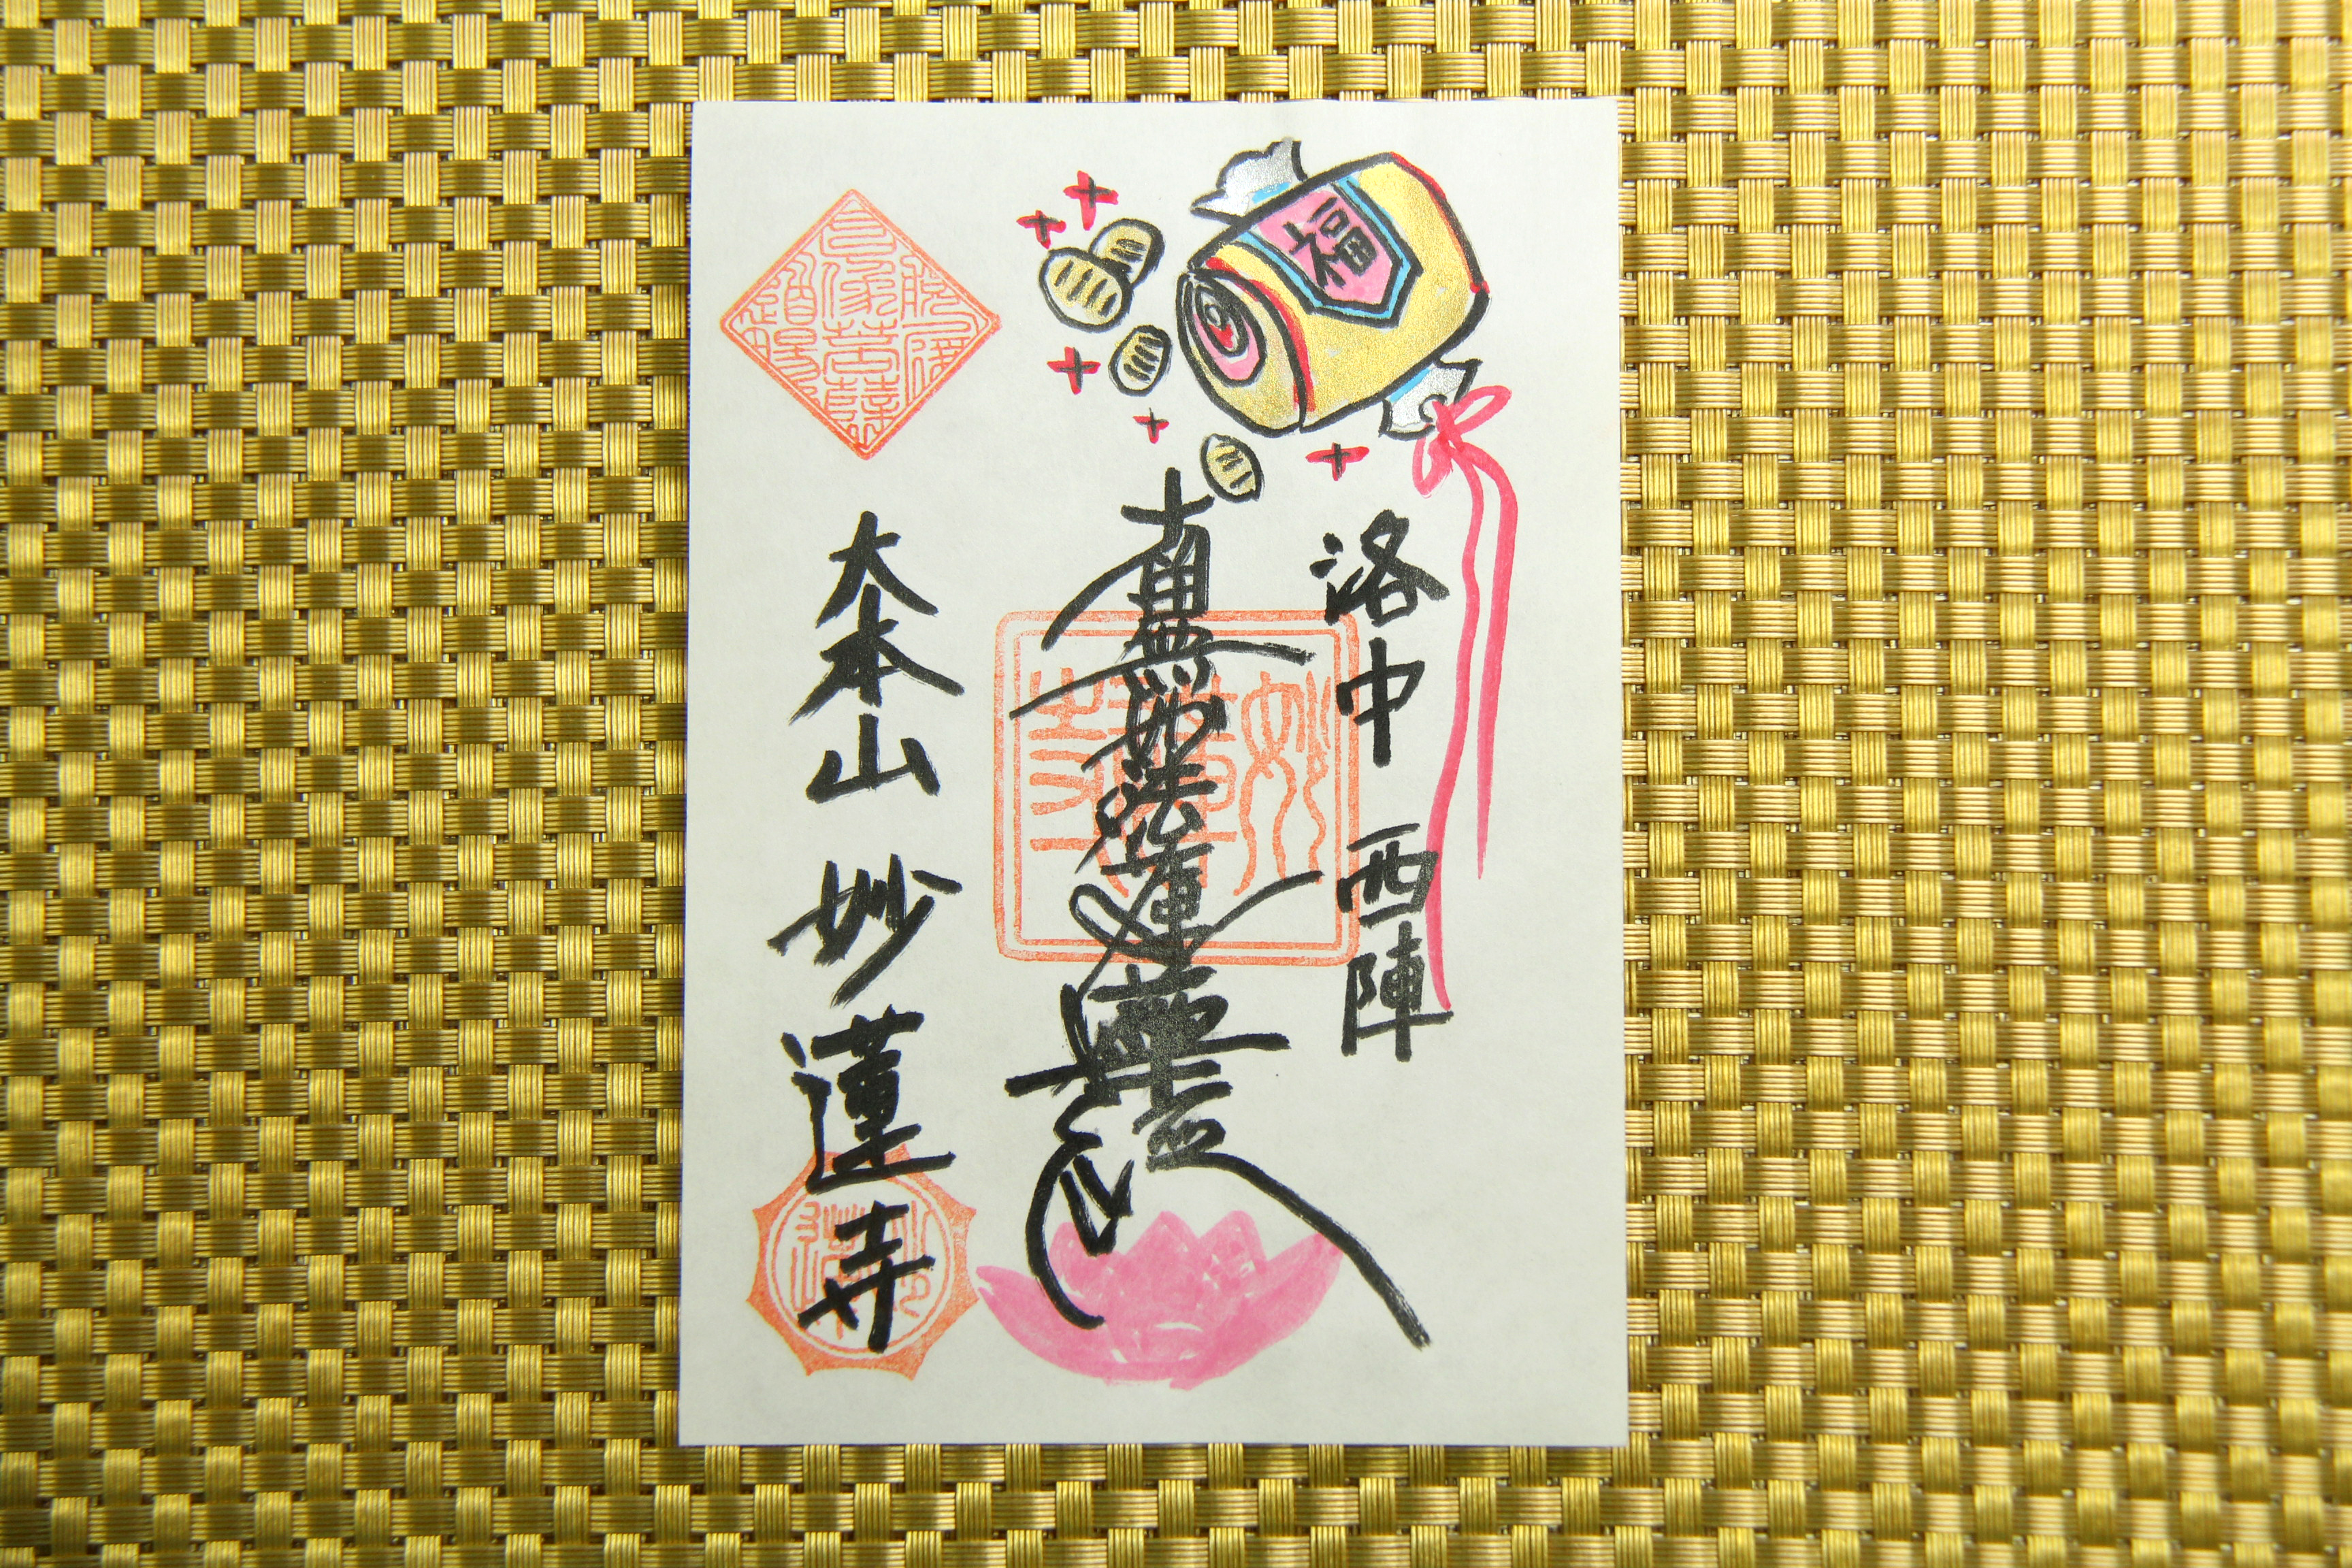 福
洛中 西陣
南無妙法蓮華経
大本山 妙蓮寺
妙蓮寺